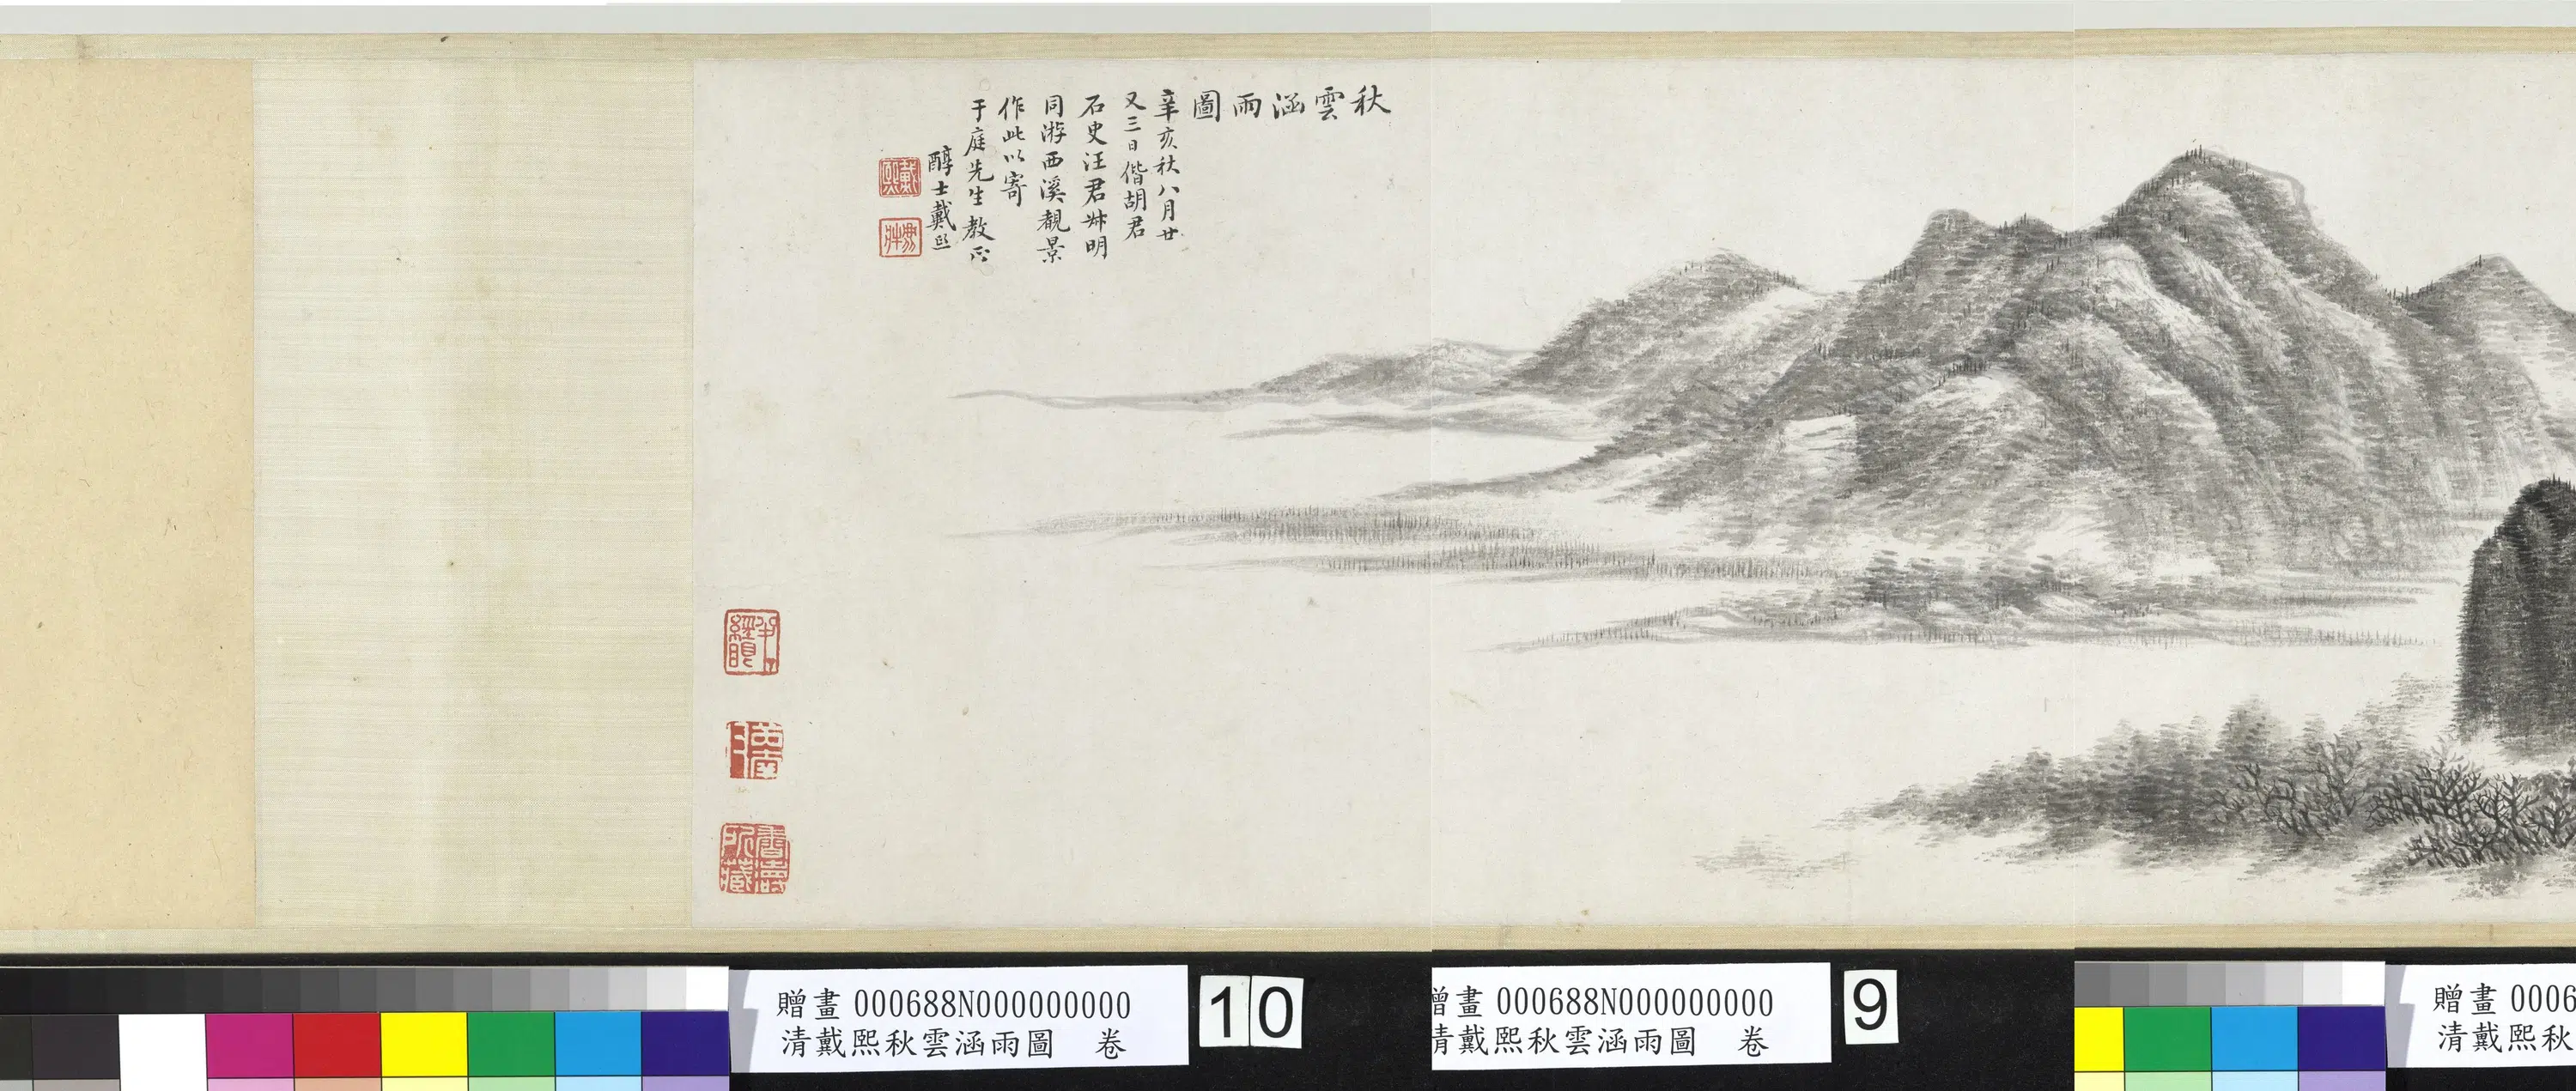 秋雲涵雨圖
辛亥秋八月廿
又三日偕胡君
石史汪君叔明
同游西溪覩景
作此以寄
于庭先生教正
醇士戴熙
戴熙
香濤所藏
贈畫 000688N000000000
清戴熙秋雲涵雨圖 卷
10
贈畫 000688N000000000
清戴熙秋雲涵雨圖 卷
9
贈畫 0006
清戴熙秋